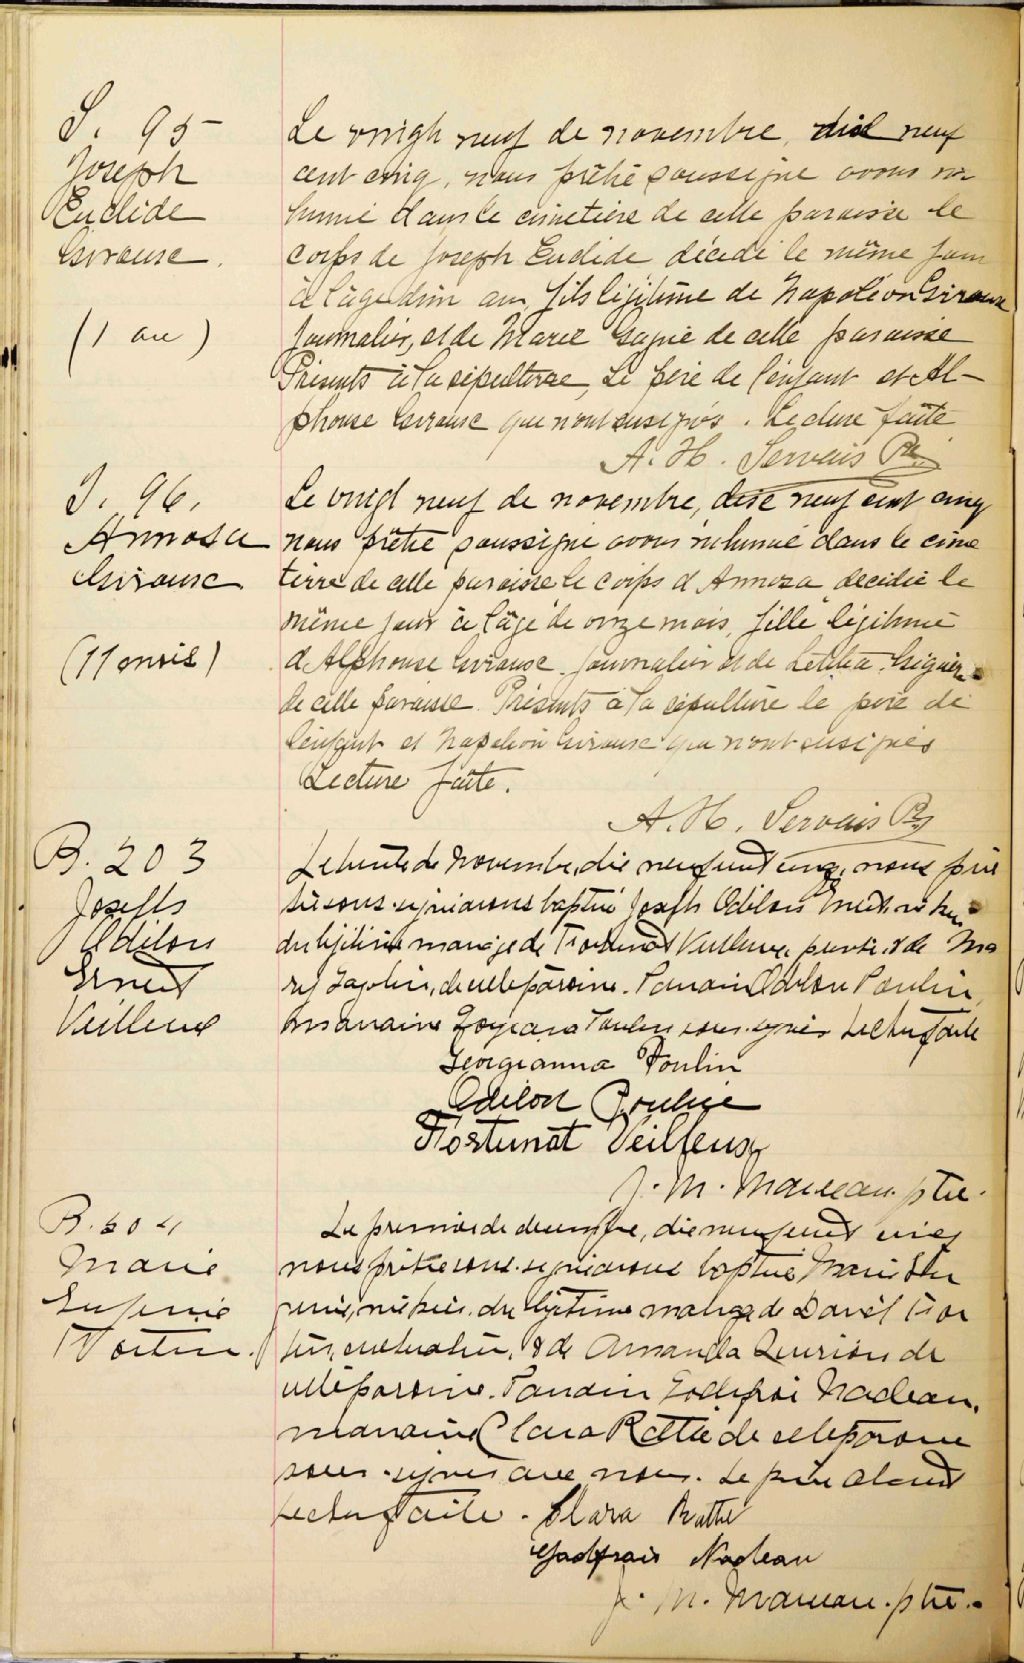 S. 95
Joseph
Euclide
Giroux.
(1 an)
Le vingh neuf de novembre, dixl neuf
cent cinq, nous prêtre soussigné avons in
humé dans le cimetière de cette paroisse le
corps de Joseph Euclide décédé le même jour
à l'âge d'un an, fils légitime de Napoléon Giroux
journalier, et de Marie Gagné de cette paroisse
Présents à la sépulture, le père de l'enfant et Al-
phonse Giroux qui n'ont su signés. Lecture faite
A. H. Servais Ptr
S. 96.
Annosa
Giroux
(11 mois)
Le vingt neuf de novembre, dixe neuf cent cinq
nous prêtre soussigné avons inhumé dans le cime
tierre de cette paroisse le corps d'Annoza décédée le
même jour à l'âge de onze mois, fille légitime
d'Alphonse Giroux journalier et de Létitia
de cette paroisse. Présents à la sépulture le père de
l'enfant et Napoléon Giroux qui n'ont su signés
Lecture faite.
A. H. Servais Ptr
B. 203
Joseph
Odilon
Ernest
Veilleux
Le trente de Novembre, dix neuf cent cinq, nous prê
tre sous-signé avons baptisé Joseph Odilon Ernest, né hier
du légitime mariage de Fortunat Veilleux, & de Ma
ry de cette paroisse. Parrain Odilon Poulin,
marraine Georgeana Poulin sous-signés Lecture faite
Georgianna Poulin
Odilon Poulin
Fortunat Veilleux
J. M. Marceau. ptre.
B. 204
Marie
Eugénie
Fortin.
Le premier de décembre, dix neuf cent cinq
nous prêtre sous-signé avons baptisé Marie Eu
génie, née hier, du légitime mariage de David For
tin, cultivateur, & de Amanda Quirion de
cette paroisse. Parrain Godefroi Nadeau,
marraine Clara Rattée de cette paroisse
sous-signés avec nous. Le père absent
Lecture faite. Clara Ratté
Godfrais Nadeau
J. M. Marceau. ptre.